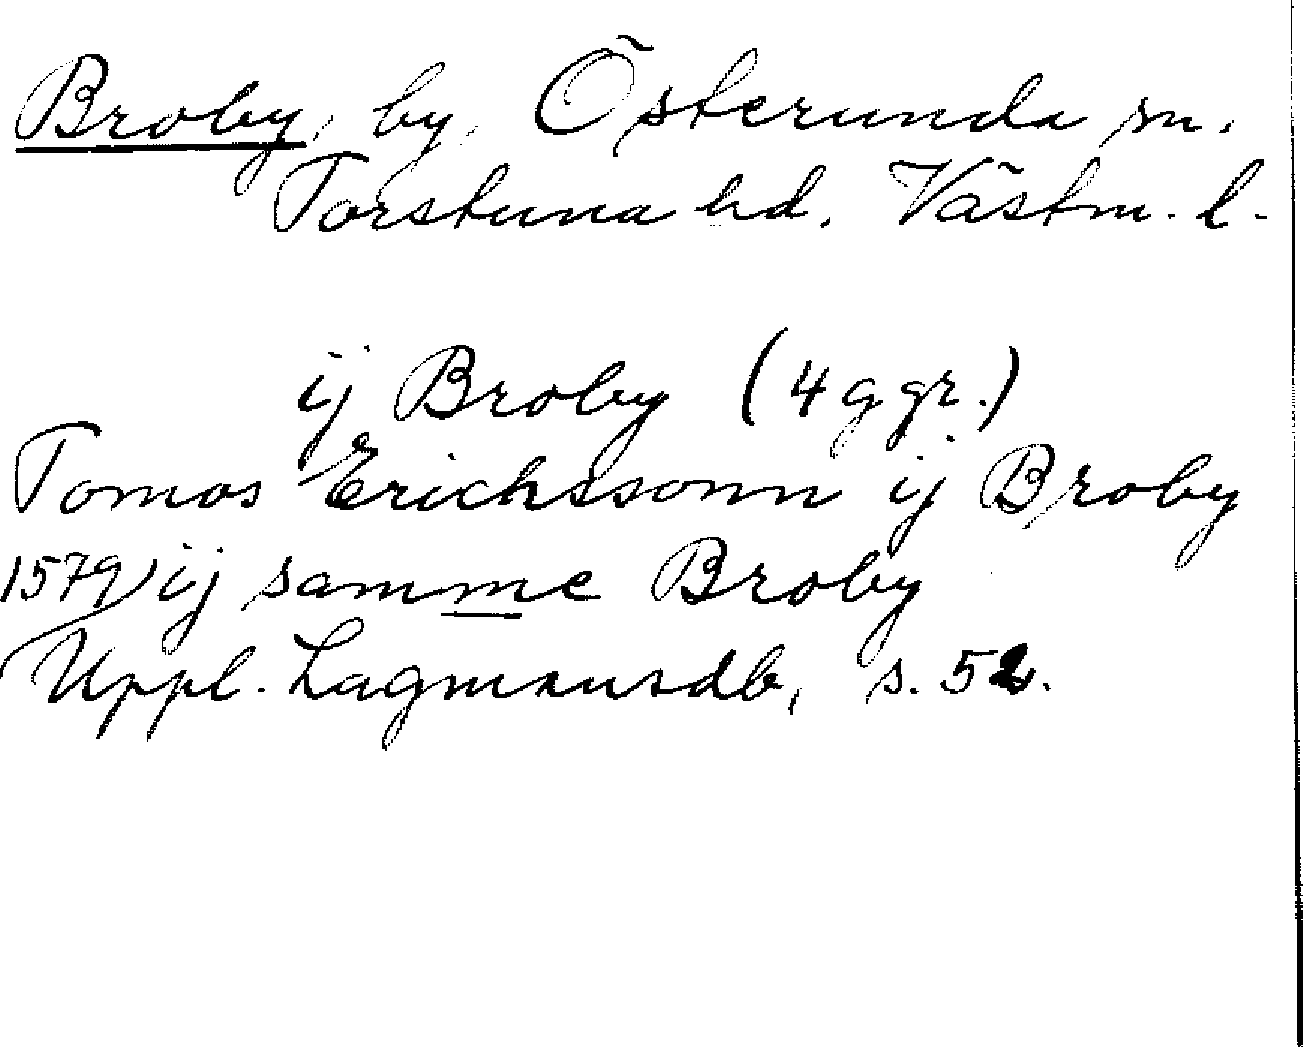 Broby, by, Österunda sn.
Torstuna hd. Västm. l.
ij Broby (4 ggr.)
Tomos Erichssonn ij Broby
1579) ij samme Broby
Uppl. Lagmansdb, s. 52.